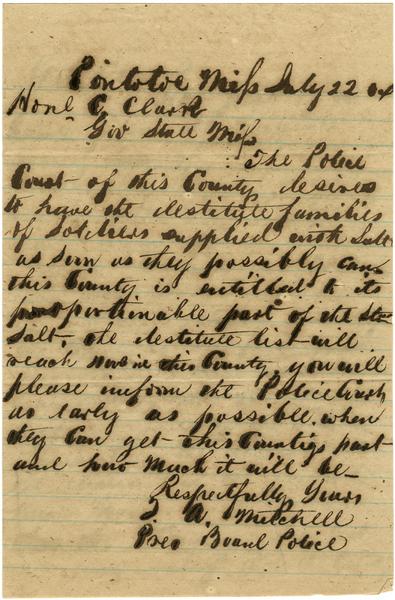 Pontotoc Miss July 22 64
Honl C Clark
Gov State Miss
The Police
Court of this County desires
to have the destitute families
of Soldiers supplied with Salt
as soon as they possibly can
this County is entitled to its
proportionable part of the State
Salt. the destitute list will
reach in this County, you will
please inform the Police Court
as early as possible. when
they Can get this Counties part
and how much it will be
Respectfully Yours
A. Mitchell
Pres Board Police